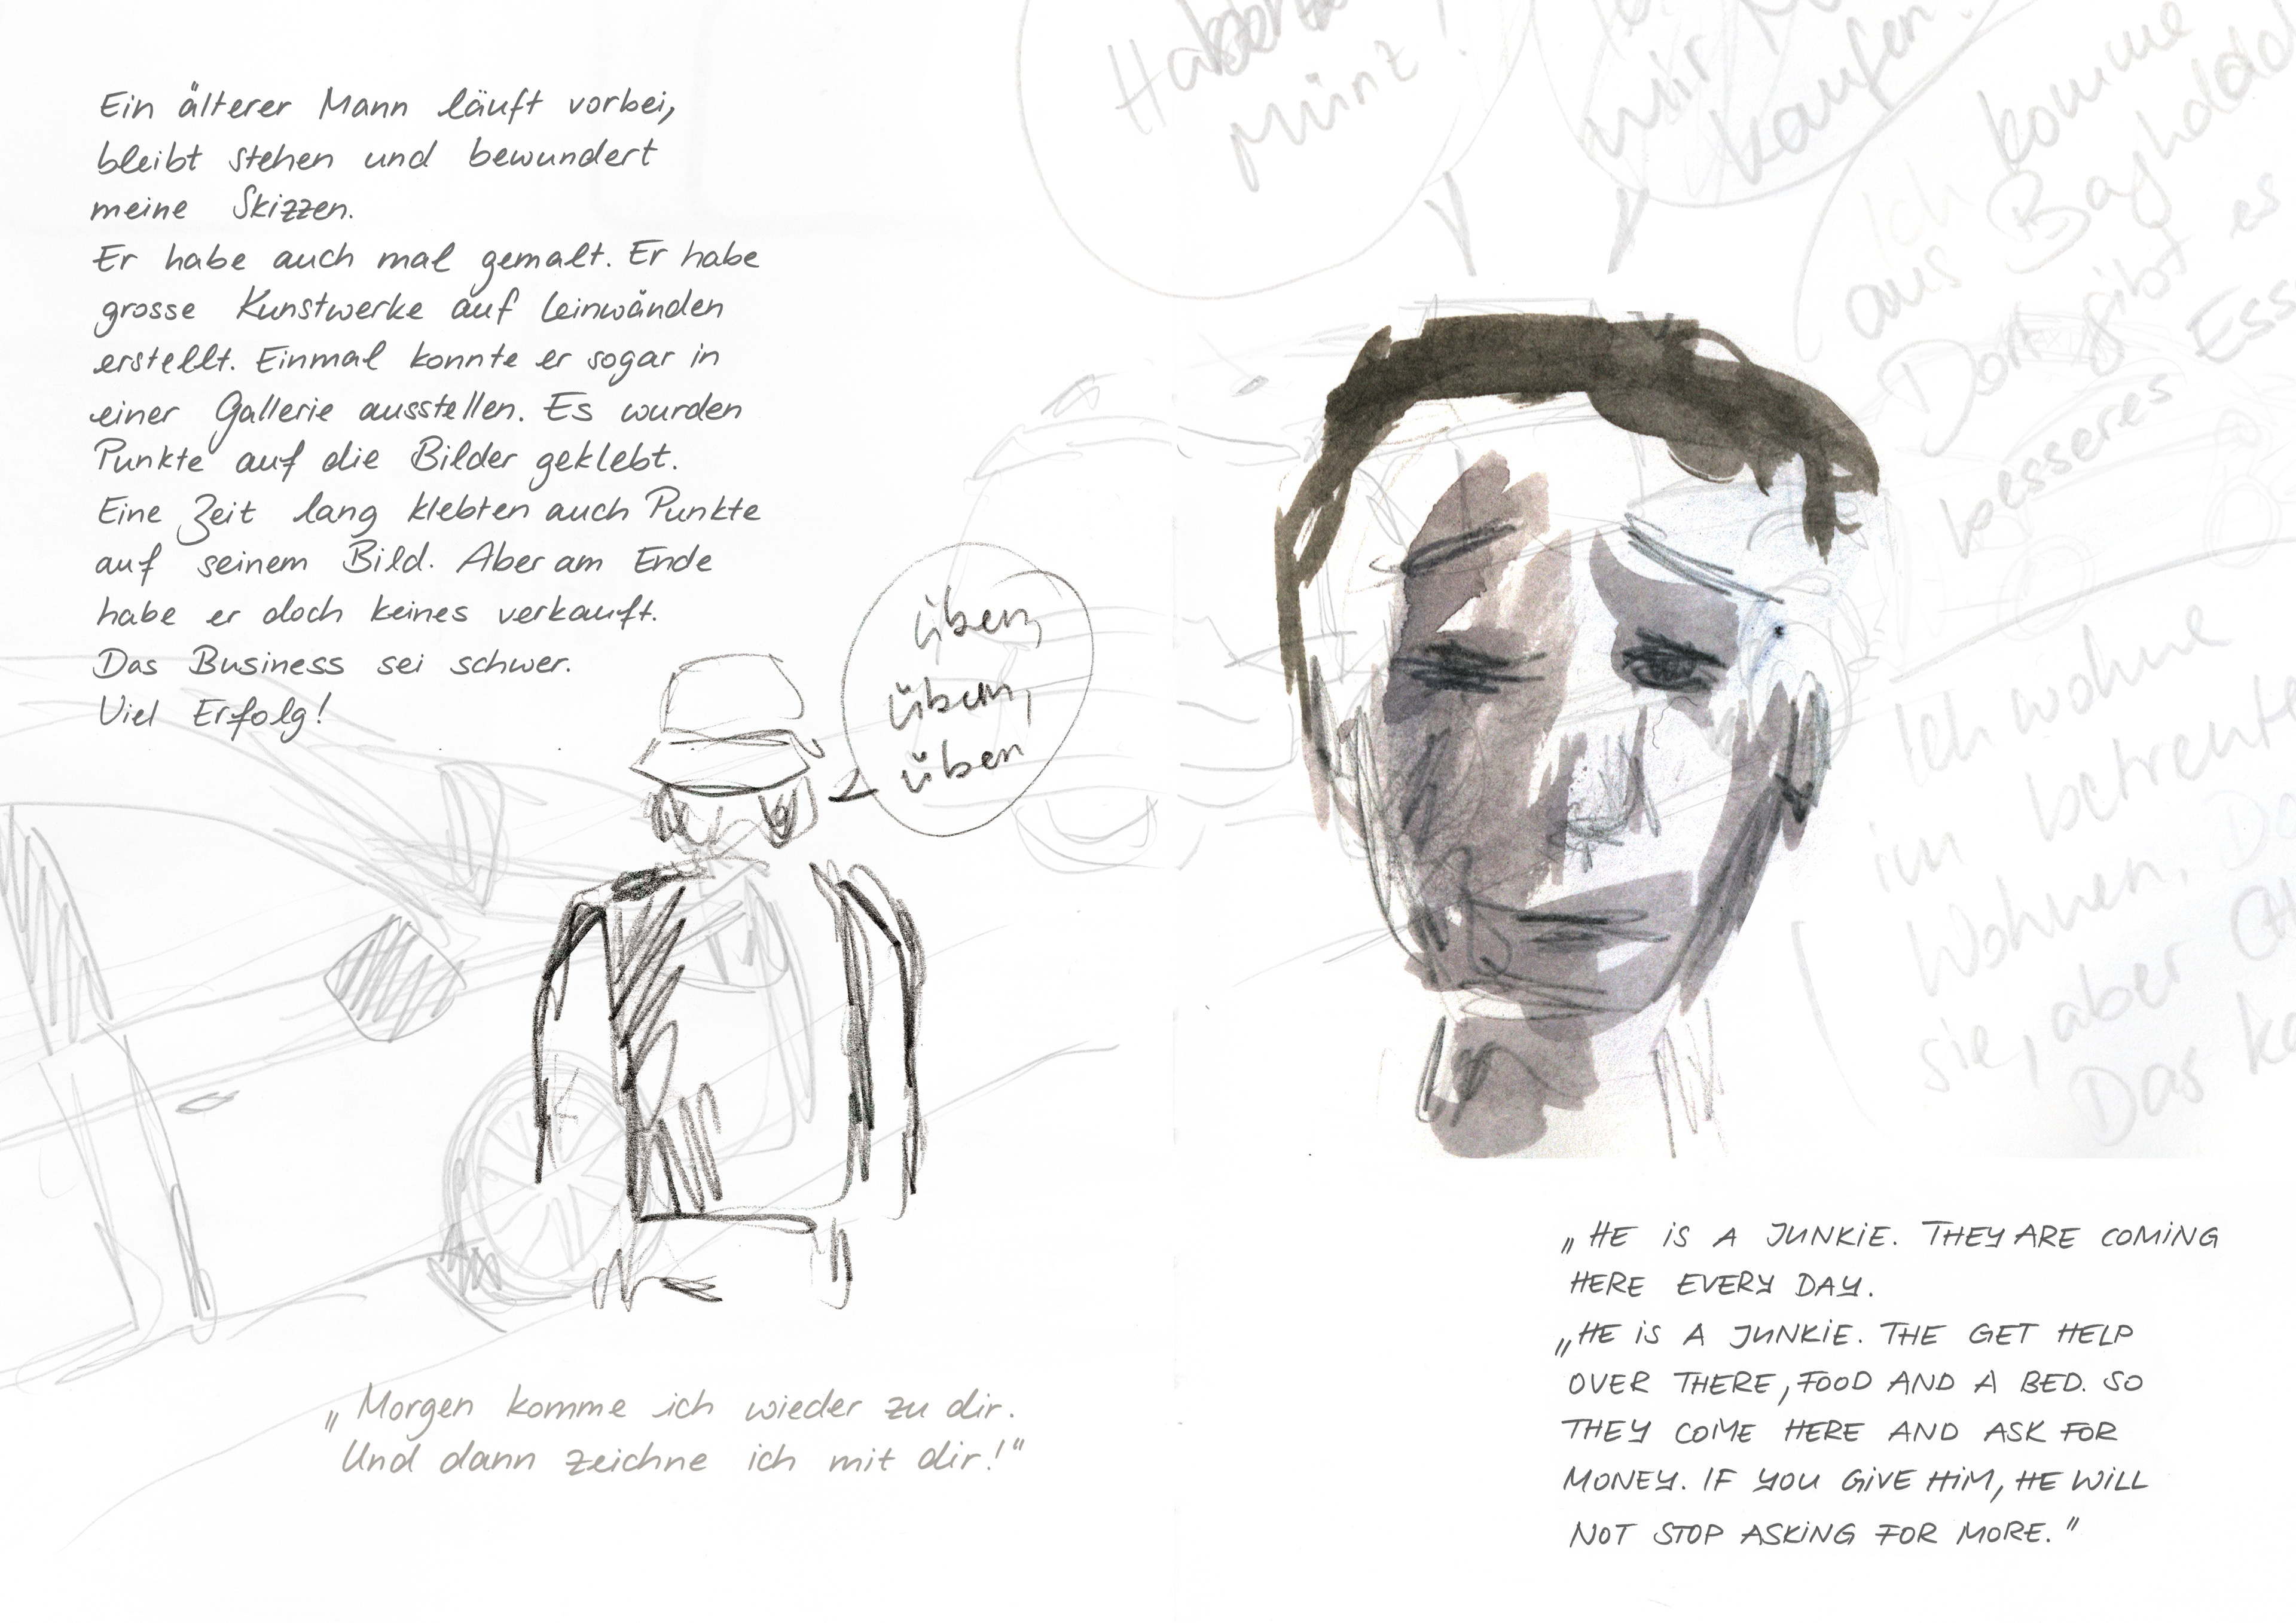 Ein älterer Mann läuft vorbei,
bleibt stehen und bewundert
meine Skizzen.
Er habe auch mal gemalt. Er habe
grosse Kunstwerke auf Leinwänden
erstellt. Einmal konnte er sogar in
einer Gallerie ausstellen. Es wurden
Punkte auf die Bilder geklebt.
Eine Zeit lang klebten auch Punkte
auf seinem Bild. Aber am Ende
habe er doch keines verkauft.
Das Business sei schwer.
Viel Erfolg!
üben,
üben,
üben
„Morgen komme ich wieder zu dir.
Und dann zeichne ich mit dir!"
Münz?
mir
kaufen
Ich komme
aus Baghdad
Dort gibt es
besseres Ess
Ich wohne
im betreute
Wohnen. Da
sie, aber
Das
„HE IS A JUNKIE. THEY ARE COMING
HERE EVERY DAY.
„HE IS A JUNKIE. THE GET HELP
OVER THERE, FOOD AND A BED. SO
THEY COME HERE AND ASK FOR
MONEY. IF YOU GIVE HIM, HE WILL
NOT STOP ASKING FOR MORE."